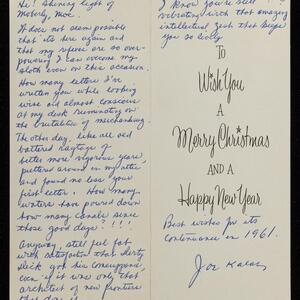 Hi! Shining light
of Moberly, Moe.
It does not seem possible
that its here again and
that my urges are so over-
powering I can overcome my
sloth even on this occasion.
How many letters I've
written you while looking
wise and almost conscious
at my desk ruminating on
the crudities of merchandising.
The other day, like all old
battered ragtags of
better more vigorous years,
puttered around in my attic
and found no less your
first letter. How many
waters have poured down
how many canals since
those good days? ! ! !
Anyway, still feel fat
with satisfaction that dirty
dick got his comeuppance,
even if it was only that
architect of new frontiers
I know you're still
vibrating with that amazing
intellectual zest that keeps
you so lively
To
Wish You
A
Merry Christmas
AND A
Happy New Year
Best wishes for its
continuance in 1961.
Joe